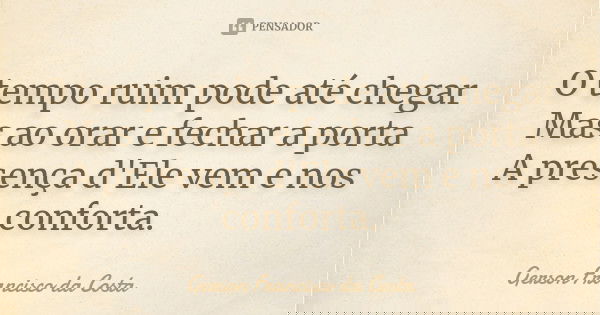 PENSADOR
O tempo ruim pode até chegar
Mas ao orar e fechar a porta
A presença d'Ele vem e nos
conforta.
Gerson Francisco da Costa